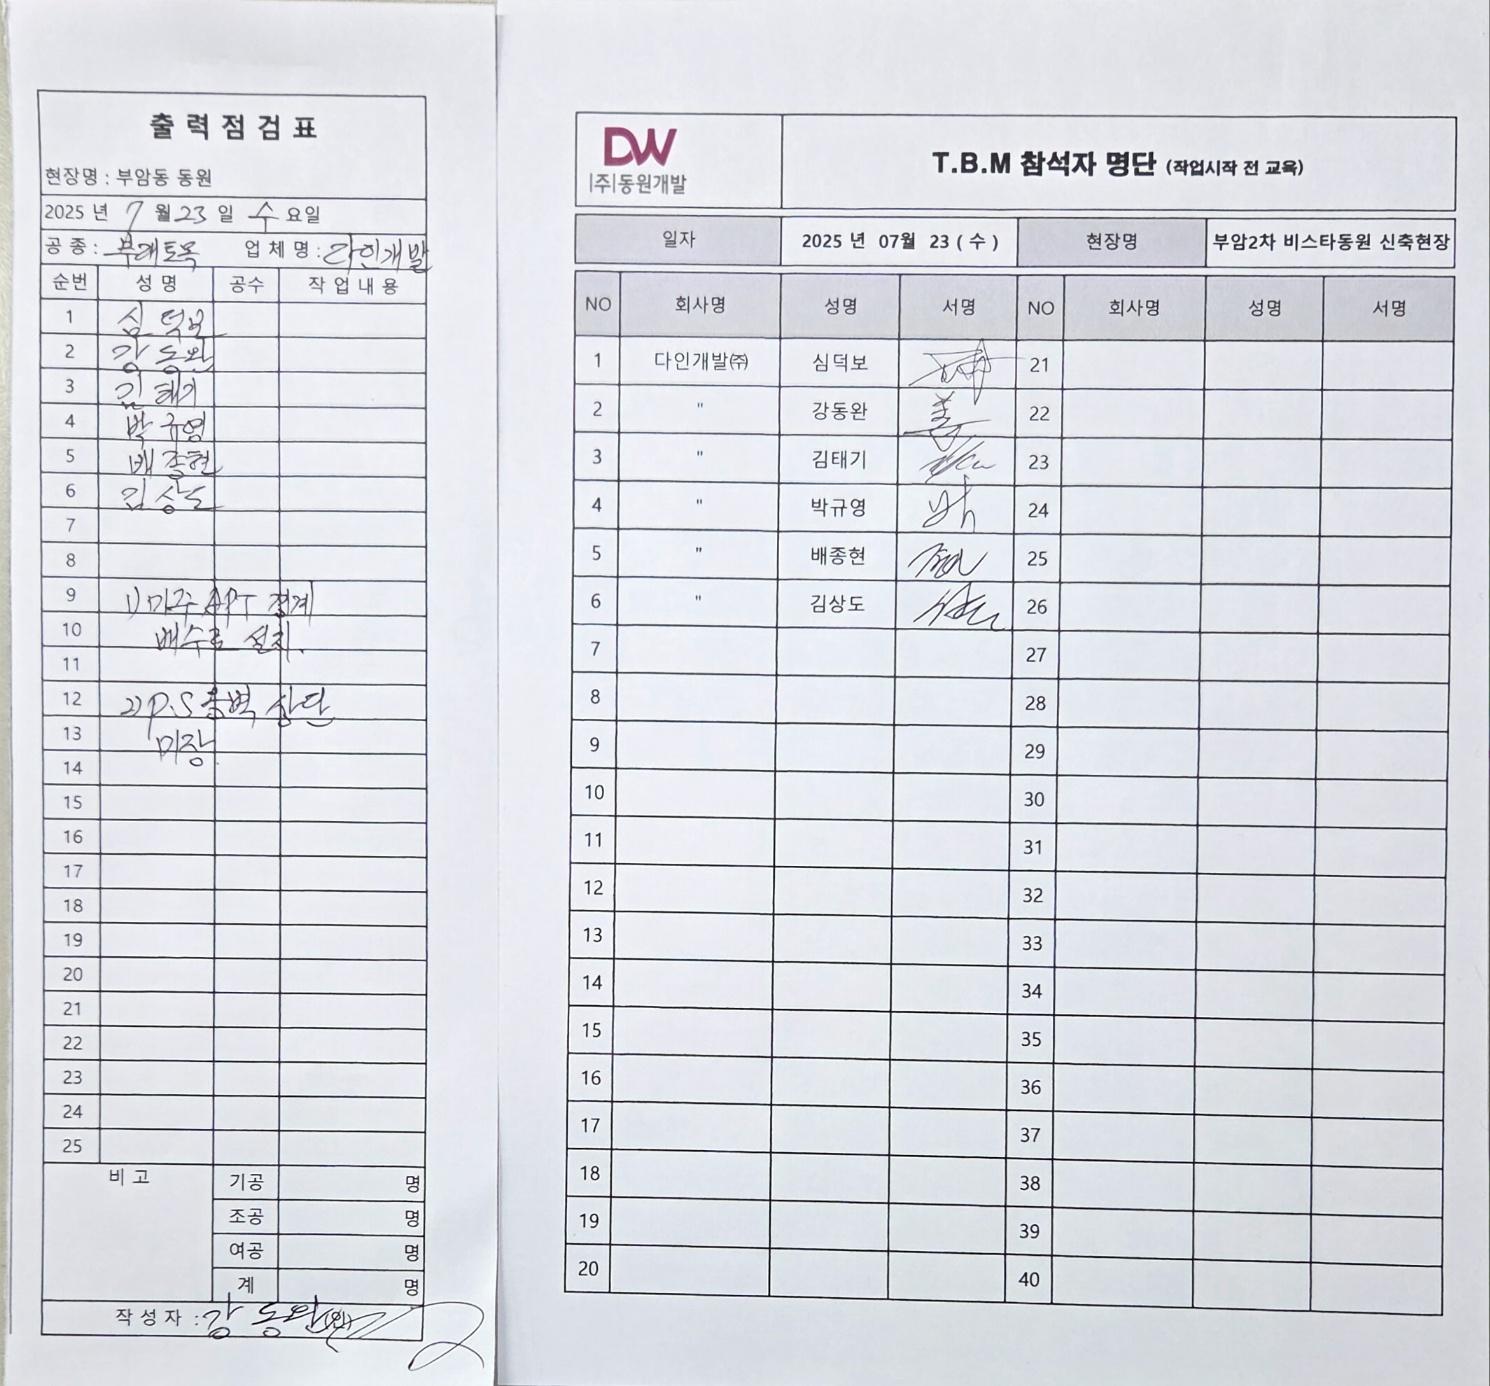 출력점검표
현장명 : 부암동 동원
2025 년 7 월 23 일 수 요일
공 종 : 부대토목 업 체 명 : 다인개발
순번 성 명 공수 작 업 내 용
1 심덕보
2 강동완
3 김태기
4 박규영
5 배종현
6 김상도
7
8
9 1) 마주 APT 경계
10 배수로 설치.
11
12 2) P.S 옹벽 상단
13 미장.
14
15
16
17
18
19
20
21
22
23
24
25
비 고
기공 명
조공 명
여공 명
계 명
작 성 자 : 강동완
DW
(주)동원개발
T.B.M 참석자 명단 (작업시작 전 교육)
일자 2025 년 07월 23 ( 수 ) 현장명 부암2차 비스타동원 신축현장
NO 회사명 성명 서명 NO 회사명 성명 서명
1 다인개발㈜ 심덕보 21
2 " 강동완 姜 22
3 " 김태기 23
4 " 박규영 박 24
5 " 배종현 25
6 " 김상도 26
7 27
8 28
9 29
10 30
11 31
12 32
13 33
14 34
15 35
16 36
17 37
18 38
19 39
20 40